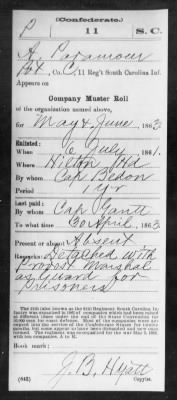 (Confederate.)
P 11 S.C.
A Paramour
Pvt, Co. C, 11 Reg't South Carolina Inf.
Appears on
Company Muster Roll
of the organization named above,
for May & June, 1863
Enlisted:
When 6 July, 1861.
Where Hilton Hd
By whom Cap Bedon
Period 1 yr
Last paid:
By whom Cap Gantt
To what time 30 April, 1863
Present or absent Absent
Remarks: Detached with
Provost Marshal
as guard for
prisoners
Book mark:
J. B. Hyatt
(642) Copyist.